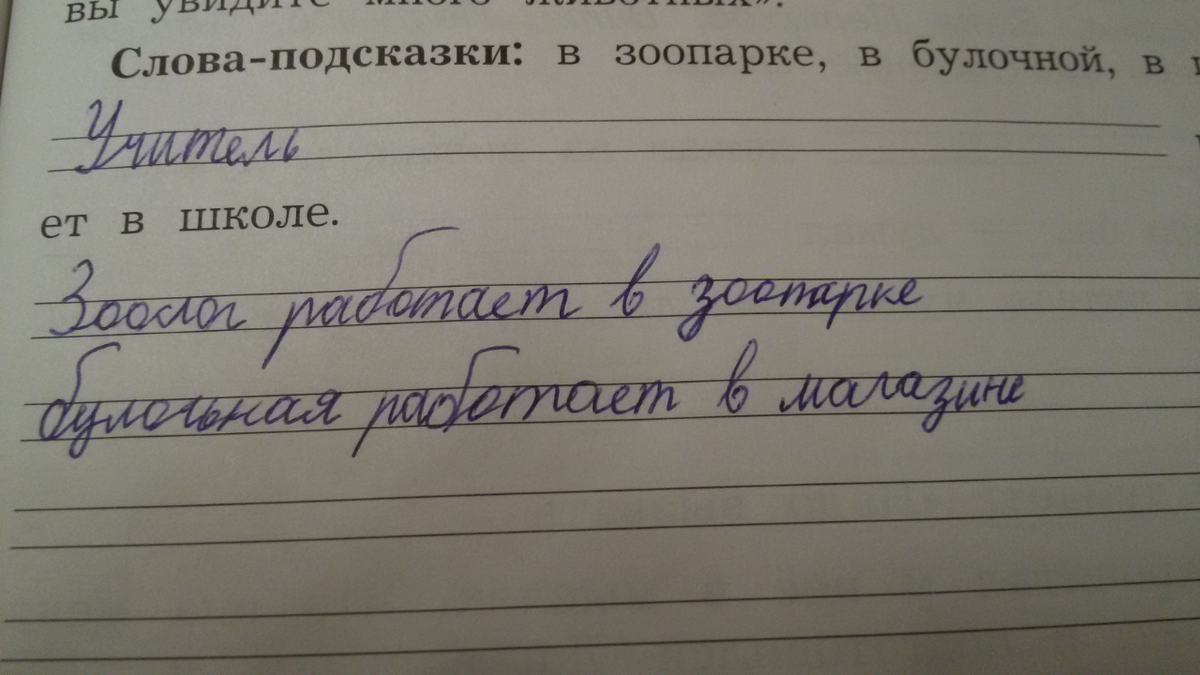 вы увидите много животных».
Слова-подсказки: в зоопарке, в булочной, в
Учитель
ет в школе.
Зоолог работает в зоопарке
булольная работает в магазине